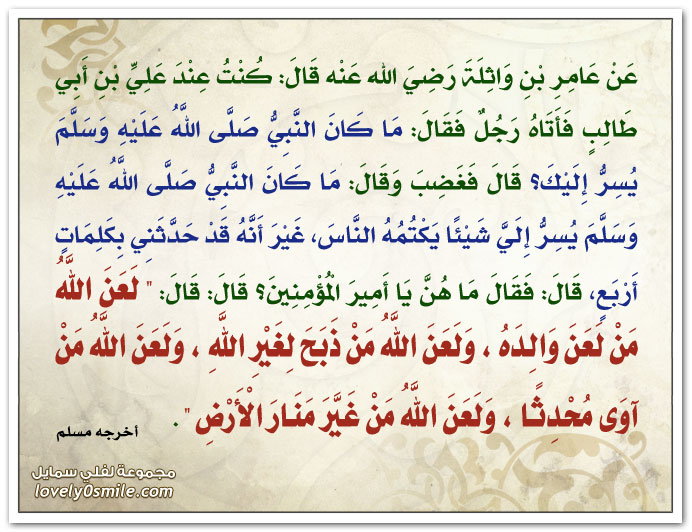 عَنْ عَامِرِ بْنِ وَاثِلَةَ رَضِيَ الله عَنْه قَالَ: كُنْتُ عِنْدَ عَلِيِّ بْنِ أَبِي
طَالِبٍ فَأَتَاهُ رَجُلٌ فَقَالَ: مَا كَانَ النَّبِيُّ صَلَّى اللَّهُ عَلَيْهِ وَسَلَّمَ
يُسِرُّ إِلَيْكَ؟ قَالَ فَغَضِبَ وَقَالَ: مَا كَانَ النَّبِيُّ صَلَّى اللَّهُ عَلَيْهِ
وَسَلَّمَ يُسِرُّ إِلَيَّ شَيْئًا يَكْتُمُهُ النَّاسَ، غَيْرَ أَنَّهُ قَدْ حَدَّثَنِي بِكَلِمَاتٍ
أَرْبَعٍ، قَالَ: فَقَالَ مَا هُنَّ يَا أَمِيرَ الْمُؤْمِنِينَ؟ قَالَ: قَالَ: " لَعَنَ اللَّهُ
مَنْ لَعَنَ وَالِدَهُ ، وَلَعَنَ اللَّهُ مَنْ ذَبَحَ لِغَيْرِ اللَّهِ ، وَلَعَنَ اللَّهُ مَنْ
آوَى مُحْدِثًا ، وَلَعَنَ اللَّهُ مَنْ غَيَّرَ مَنَارَ الْأَرْضِ " .
أخرجه مسلم
مجموعة لفلي سمايل
lovely0smile.com